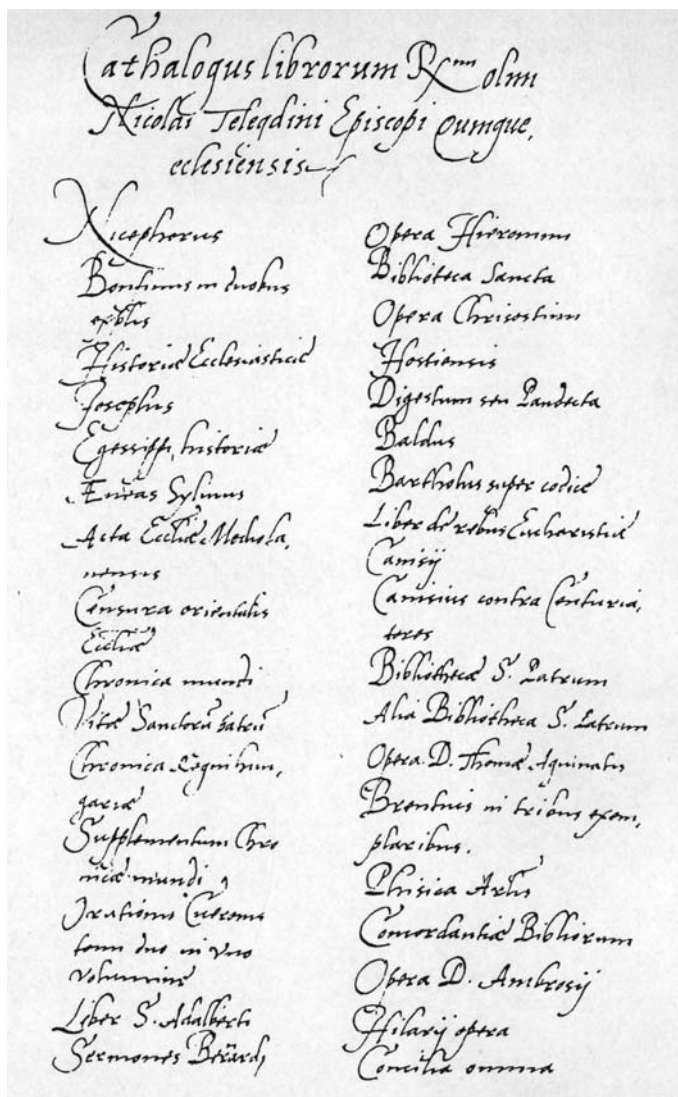 Cathalogus librorum Rmi olim
Nicolai Telegdini Episcopi Quinque,
eclesiensis
Nicephorus
Bonfinius in duobus
exblis
Historiæ Ecclesiasticæ
Josephus
Egessippi historiæ
Æneas Sylvius
Acta Eccliæ Mediola,
nensis
Censura orientalis
Eccliæ
Chronica mundi
Vitæ Sanctorū patrū
Chronica Regni hun,
gariæ
Supplementum Chro
nicæ mundi
Orationis Ciceronis
tomi duo in vno
volumine
Liber S. Adalberti
Sermones Berardj
Opera Hieronimi
Biblioteca Sancta
Opera Chrisostimi
Hostiensis
Digestum seu Pandecta
Baldus
Bartholus super codicē
Liber de rebus Eucharistiæ
Canisij
Canisius contra Centuria,
tores
Bibliothecæ S. Patrum
Alia Bibliotheca S. Patrum
Opera D. Thomæ Aquinatis
Brentius in tribus exem,
plaribus.
Phisica Arlis
Concordantiæ Bibliorum
Opera D. Ambrosij
Hilarij opera
Concilia omnia